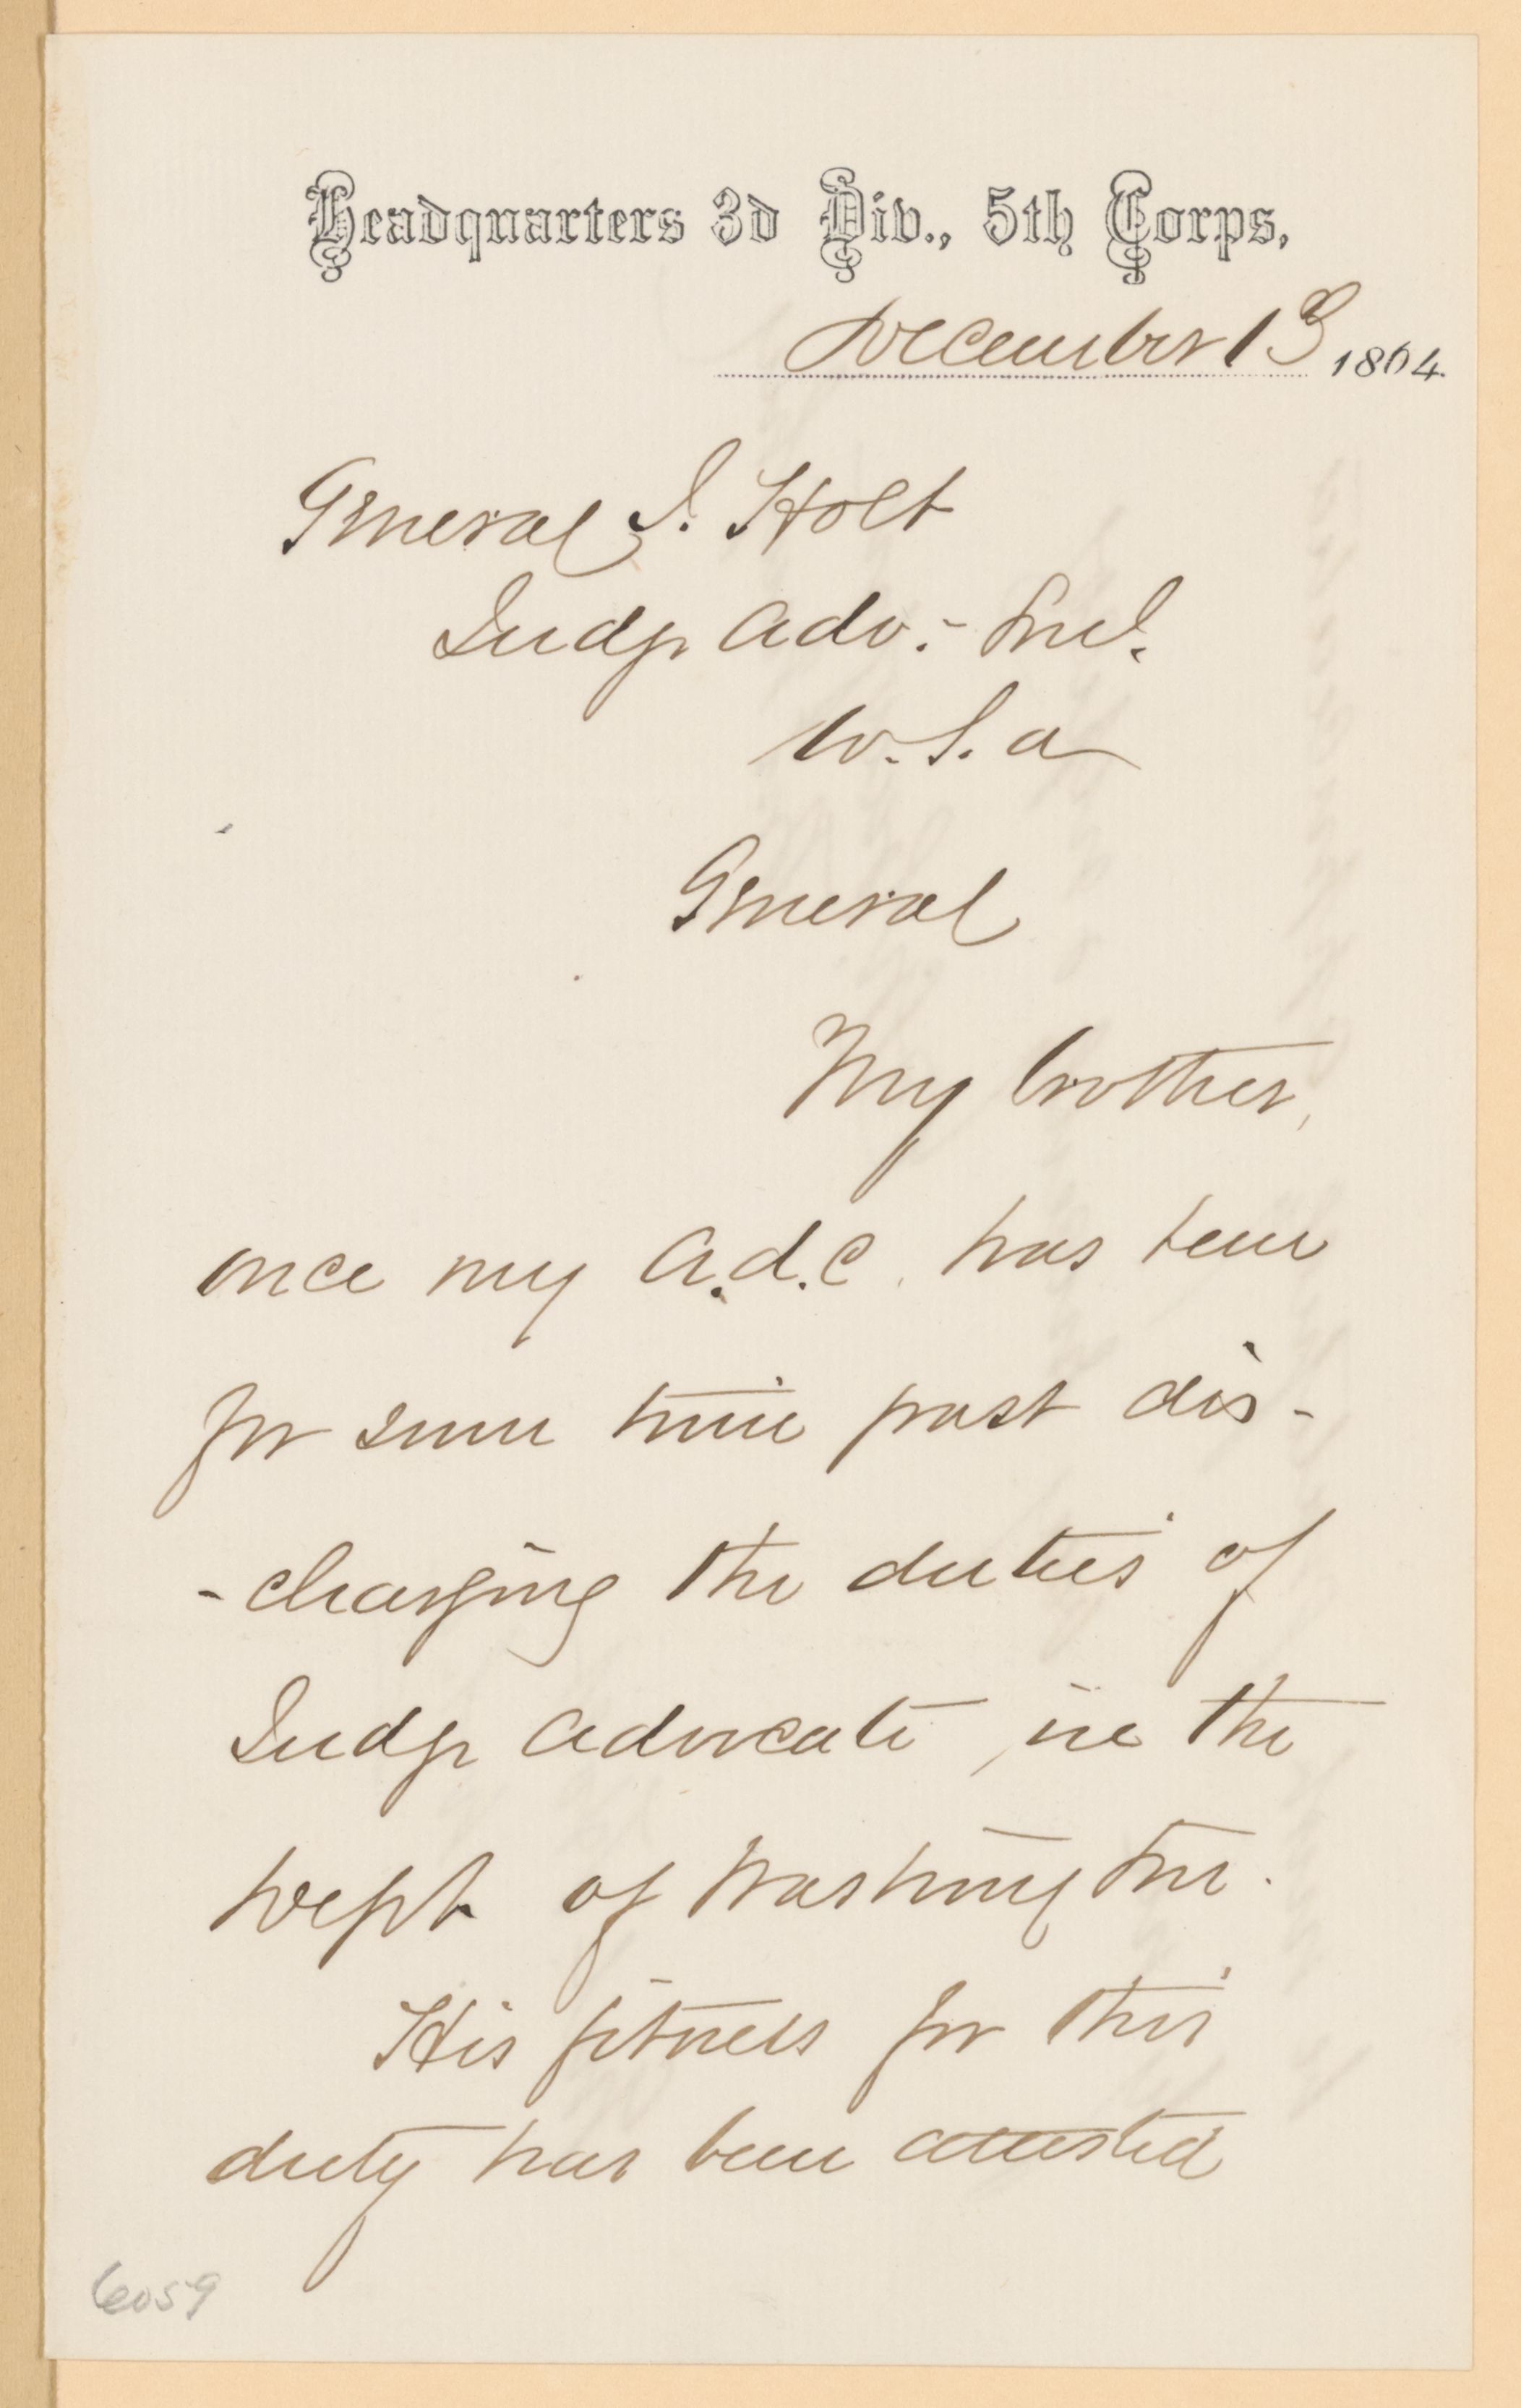 Headquarters 3d Div., 5th Corps,
December 13 1864.
General J. Holt
Judge Adv: Genl.
U.S.A
General
My brother,
once my A.d.C. has been
for some time past dis-
-charging the duties of
Judge Advocate, in the
Dept. of Washington.
His fitness for this
duty has been attested
6059